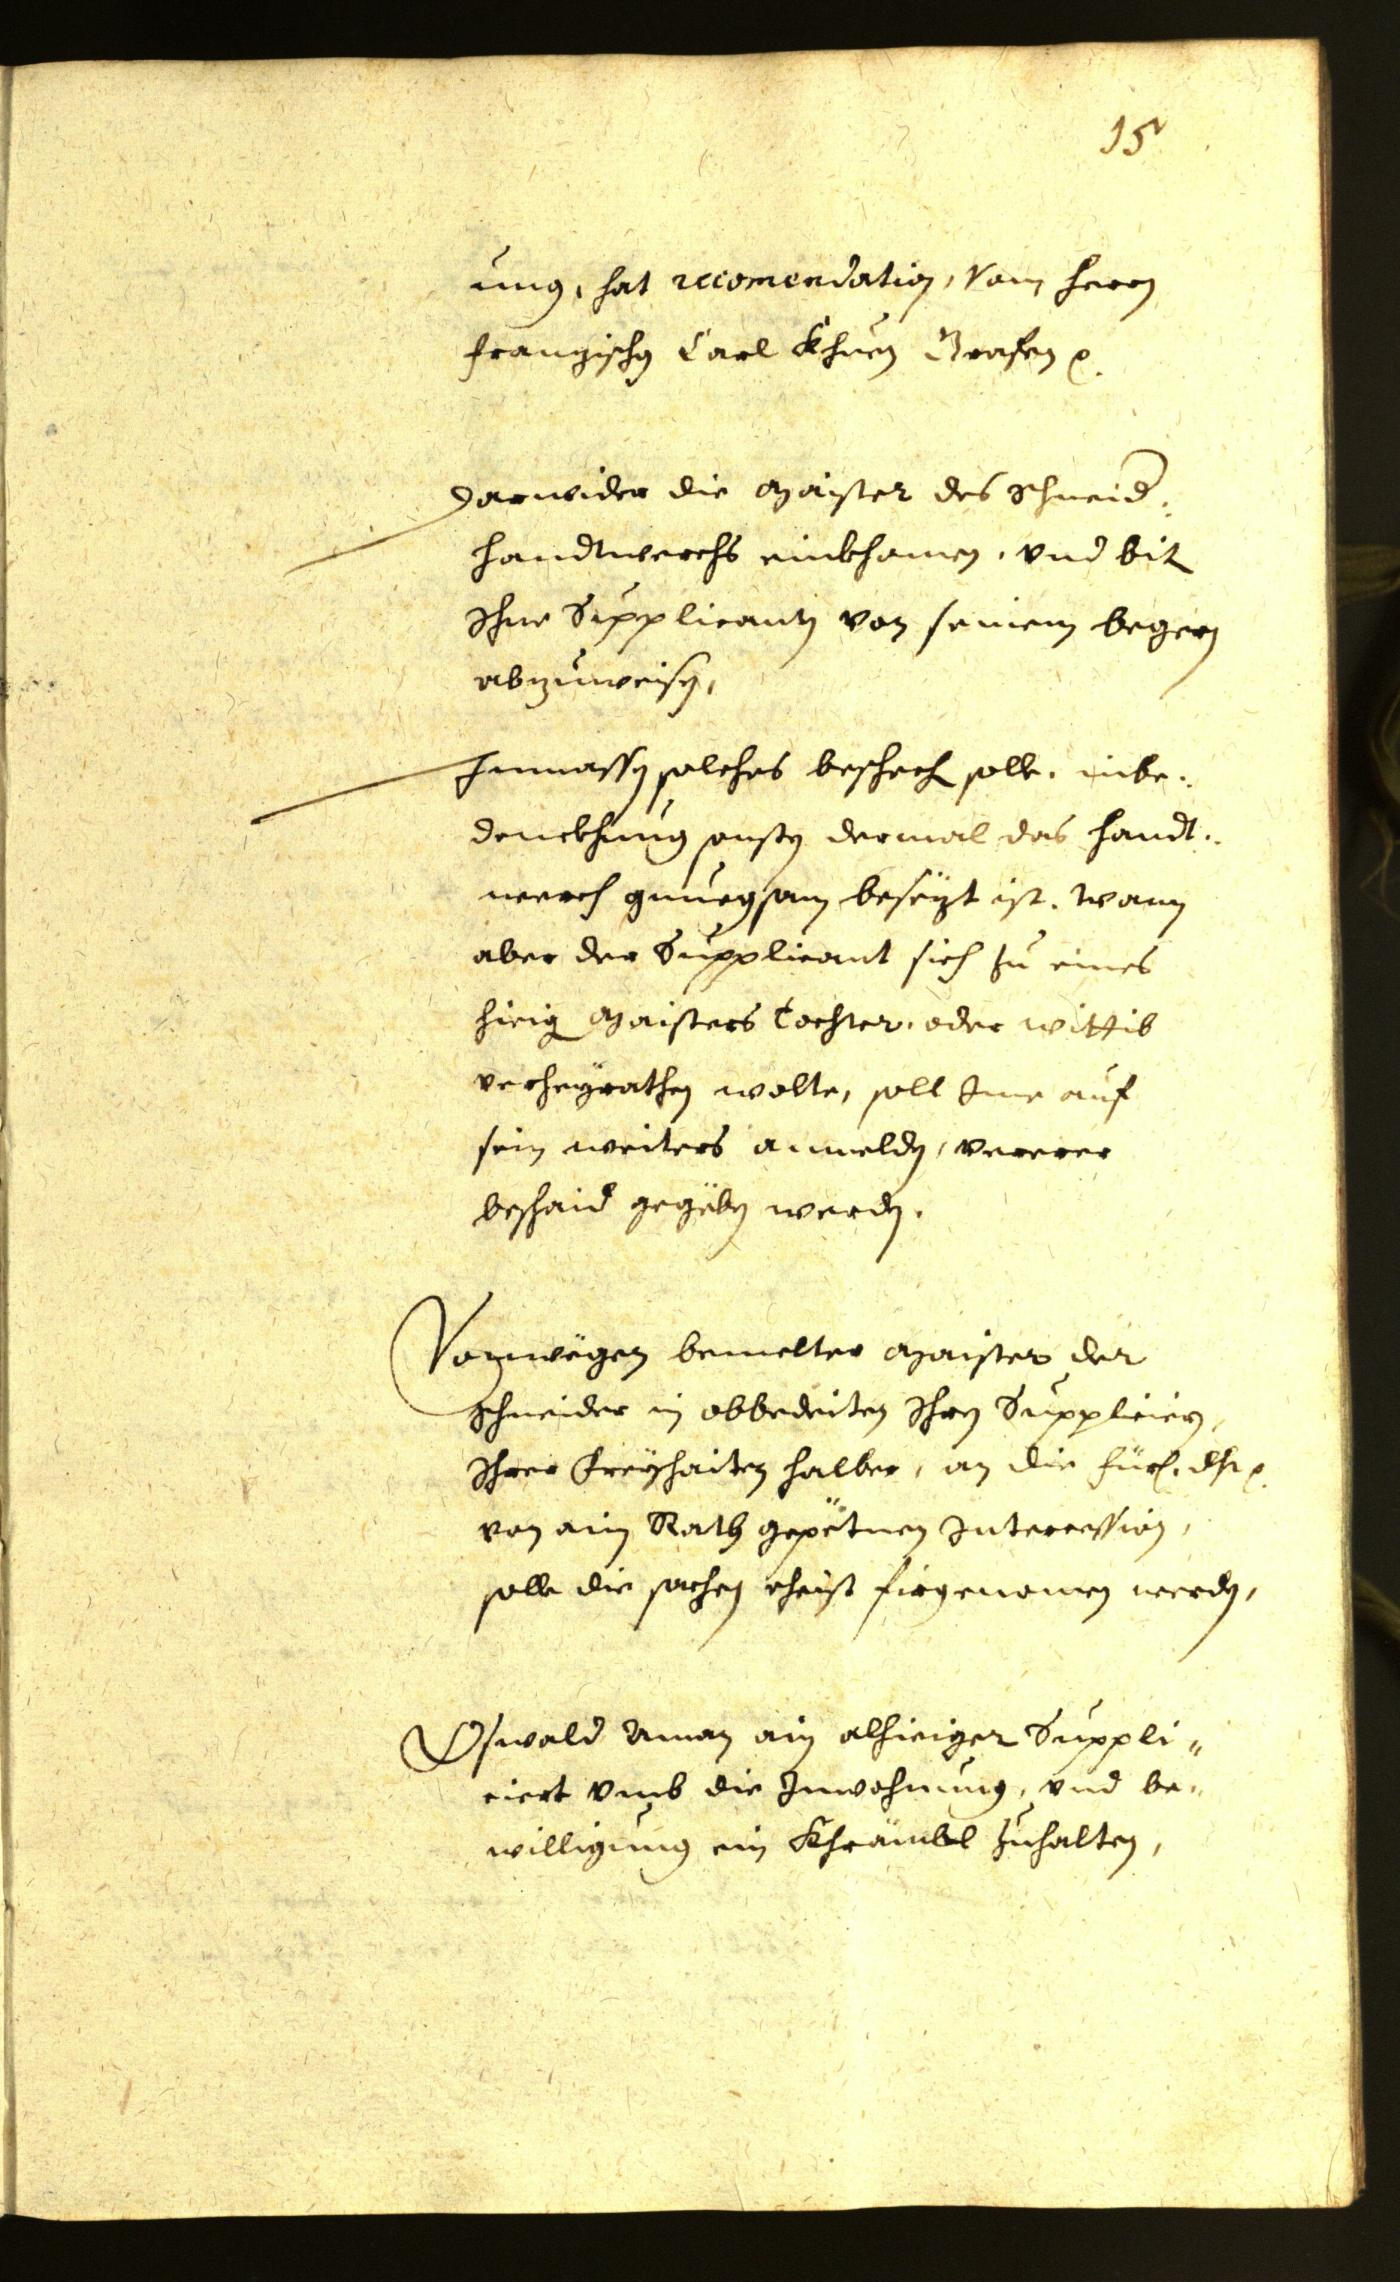 15
ung, hat recomendation, Vom herrn
Franzischg Carl Khuen Grafen
Darwider die Maister des Schneid.
handtwerchs einkhomen, vnd bit
Ihne Supplicanten von seinem begern
abzuweisen,
Inmassen solches beschech solle, inbe:
denckhung sonsten dermal das handt:
werch gnuegsam besezt ist. Wann
aber der Supplicant sich zu eines
hieig Maisters Tochter, oder wittib
verheyrathen wolte, soll Ime auf
sein weiters anmelden, verrer
beschaid gegeben werden.
Vonwegen bemelter Maister der
Schneider in obbedeiten Ihren Supplicien,
Ihrer Freyhaiten halber, an die Fürl. dhl
von aim Rath gepetnen Intercession,
solle die sachen eheist firgenomen werden,
Oswald Aman ain alhieiger Suppli„
ciert vmb die Inwohnung, vnd be„
willigung ein Khrämbl Zuhalten,